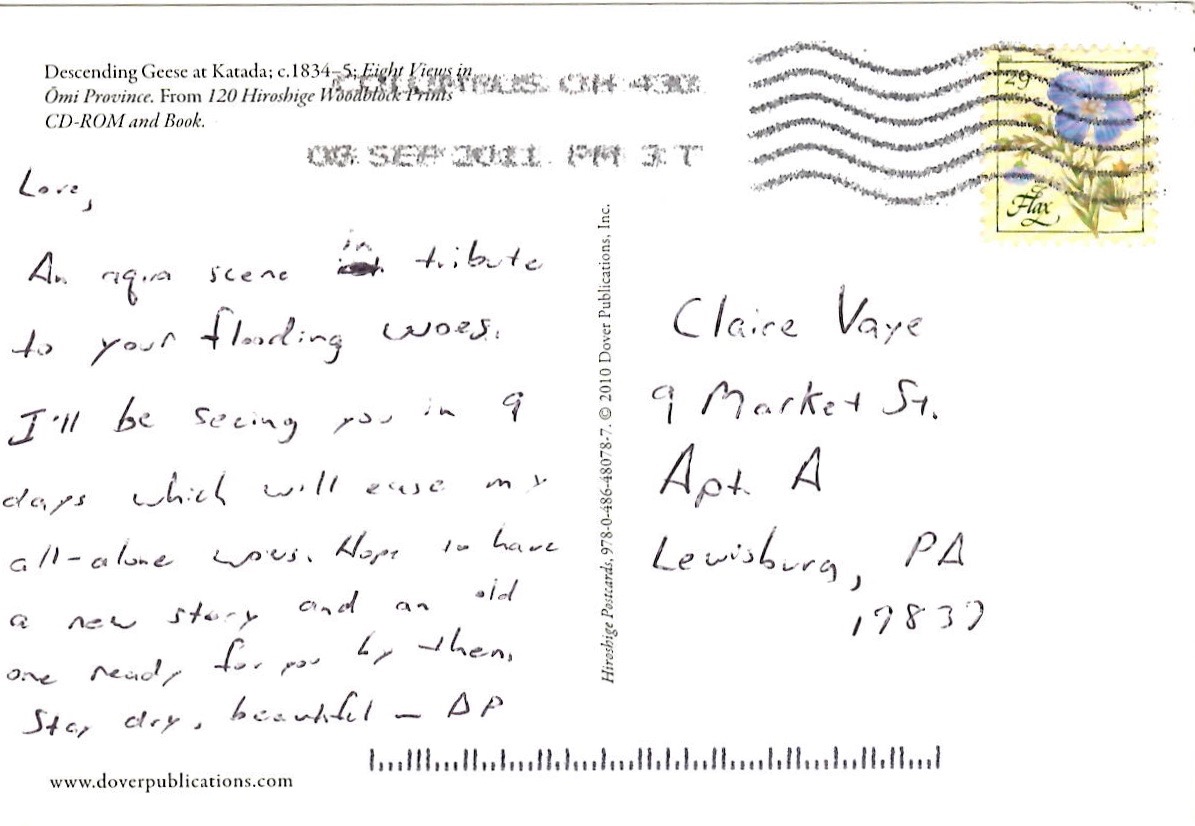 Descending Geese at Katada; c.1834–5; Eight Views in
Ōmi Province. From 120 Hiroshige Woodblock Prints
CD-ROM and Book.
OH 430
08 SEP 2011 PM 3 T
29
Flax
Love,
An aqua scene in tribute
to your flooding woes.
I'll be seeing you in 9
days which will ease my
all-alone woes. Hope to have
a new story and an old
one ready for you by then.
Stay dry, beautiful – DP
Hiroshige Postcards, 978-0-486-48078-7. © 2010 Dover Publications, Inc.
Claire Vaye
9 Market St.
Apt. A
Lewisburg, PA
17837
www.doverpublications.com